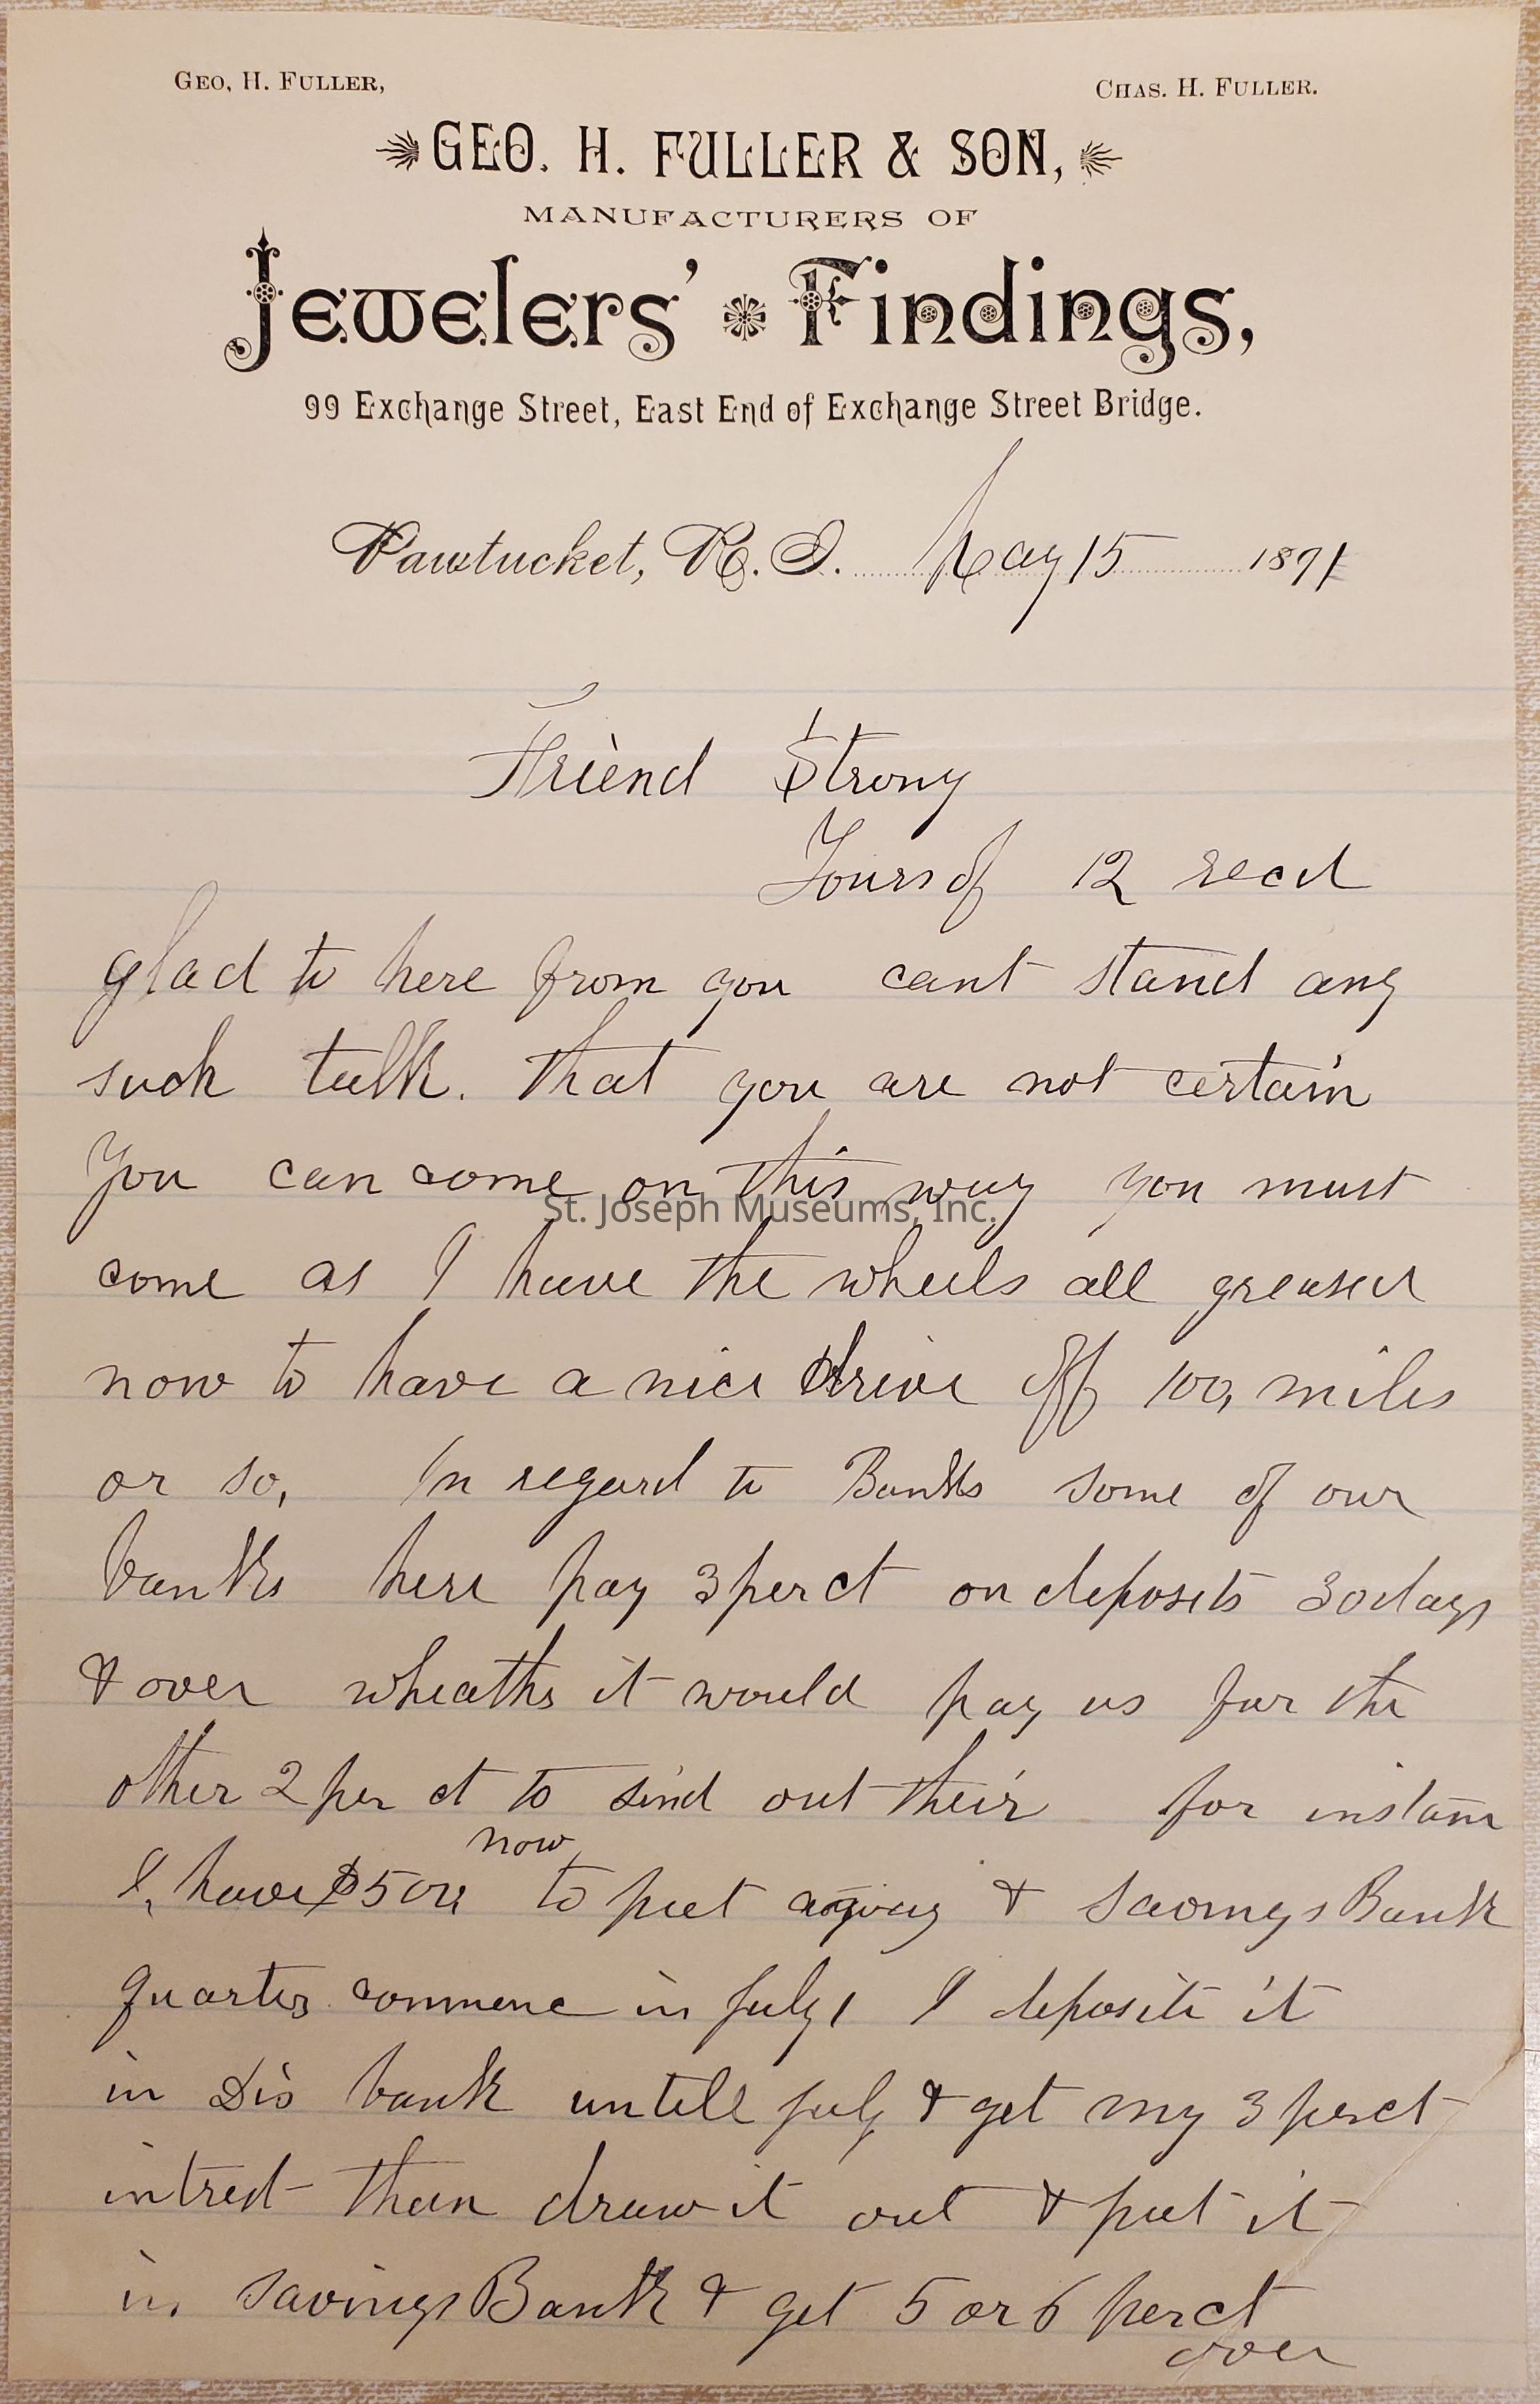 GEO. H. FULLER,
CHAS. H. FULLER.
GEO. H. FULLER & SON,
MANUFACTURERS OF
Jewelers' Findings,
99 Exchange Street, East End of Exchange Street Bridge.
Pawtucket, R. I. May 15 1891
Friend Strong
Yours of 12 recd
glad to here from you cant stand any
such talk. That you are not certain
you can come on this way you must
come as I have the wheels all greased
now to have a nice drive off 100, miles
or so, In regard to Banks some of our
banks here pay 3 per ct on deposits 30 days
& over wheather it would pay us for the
other 2 per ct to send out their for instanc
now
I, have $500 to put away & Savings Bank
quarter commenc in july I deposite it
in Dis bank untill july & get my 3 perct
intrest than draw it out & put it
in savings Bank & get 5 or 6 perct
over
St. Joseph Museums, Inc.